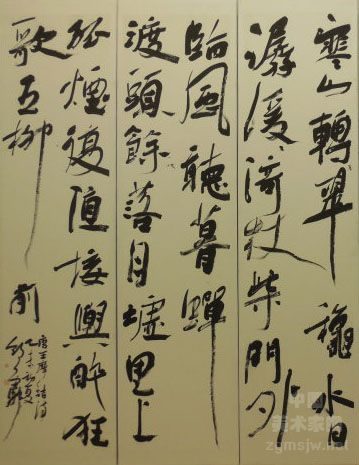 寒山轉翠龝水日
潺湲倚杖柴門外
臨風聽暮蟬
渡頭餘落日墟里上
孤煙復值接輿醉狂
歌五柳前
唐王摩詰詩
乙未夏
中国
美术家网
zgmsjw.net